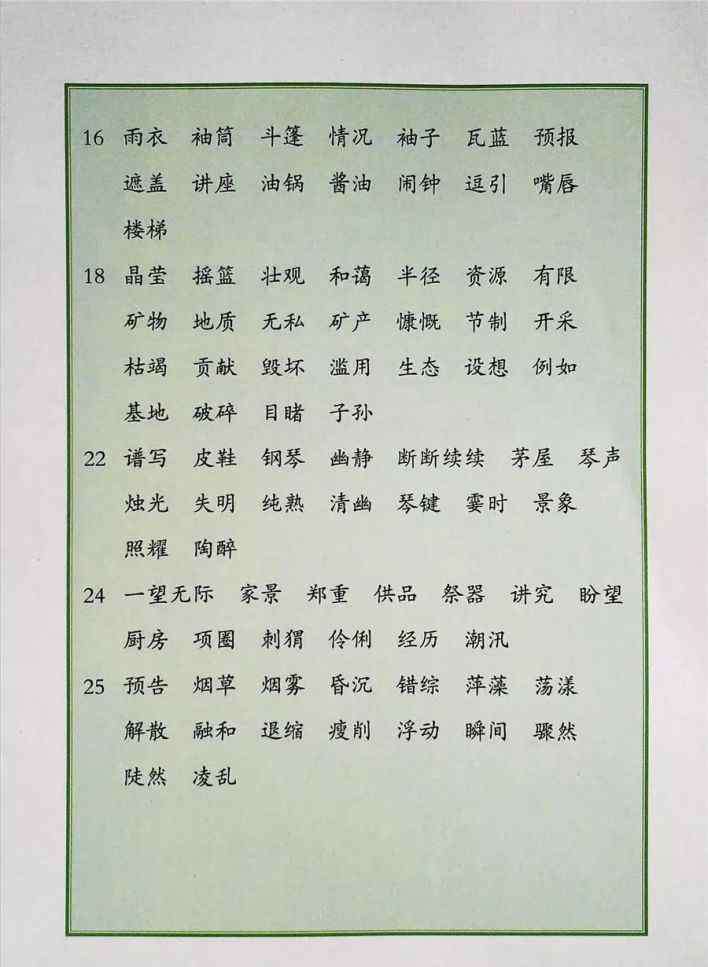 16 雨衣 袖筒 斗篷 情况 袖子 瓦蓝 预报
遮盖 讲座 油锅 酱油 闹钟 逗引 嘴唇
楼梯
18 晶莹 摇篮 壮观 和蔼 半径 资源 有限
矿物 地质 无私 矿产 慷慨 节制 开采
枯竭 贡献 毁坏 滥用 生态 设想 例如
基地 破碎 目睹 子孙
22 谱写 皮鞋 钢琴 幽静 断断续续 茅屋 琴声
烛光 失明 纯熟 清幽 琴键 霎时 景象
照耀 陶醉
24 一望无际 家景 郑重 供品 祭器 讲究 盼望
厨房 项圈 刺猬 伶俐 经历 潮汛
25 预告 烟草 烟雾 昏沉 错综 萍藻 荡漾
解散 融和 退缩 瘦削 浮动 瞬间 骤然
陡然 凌乱